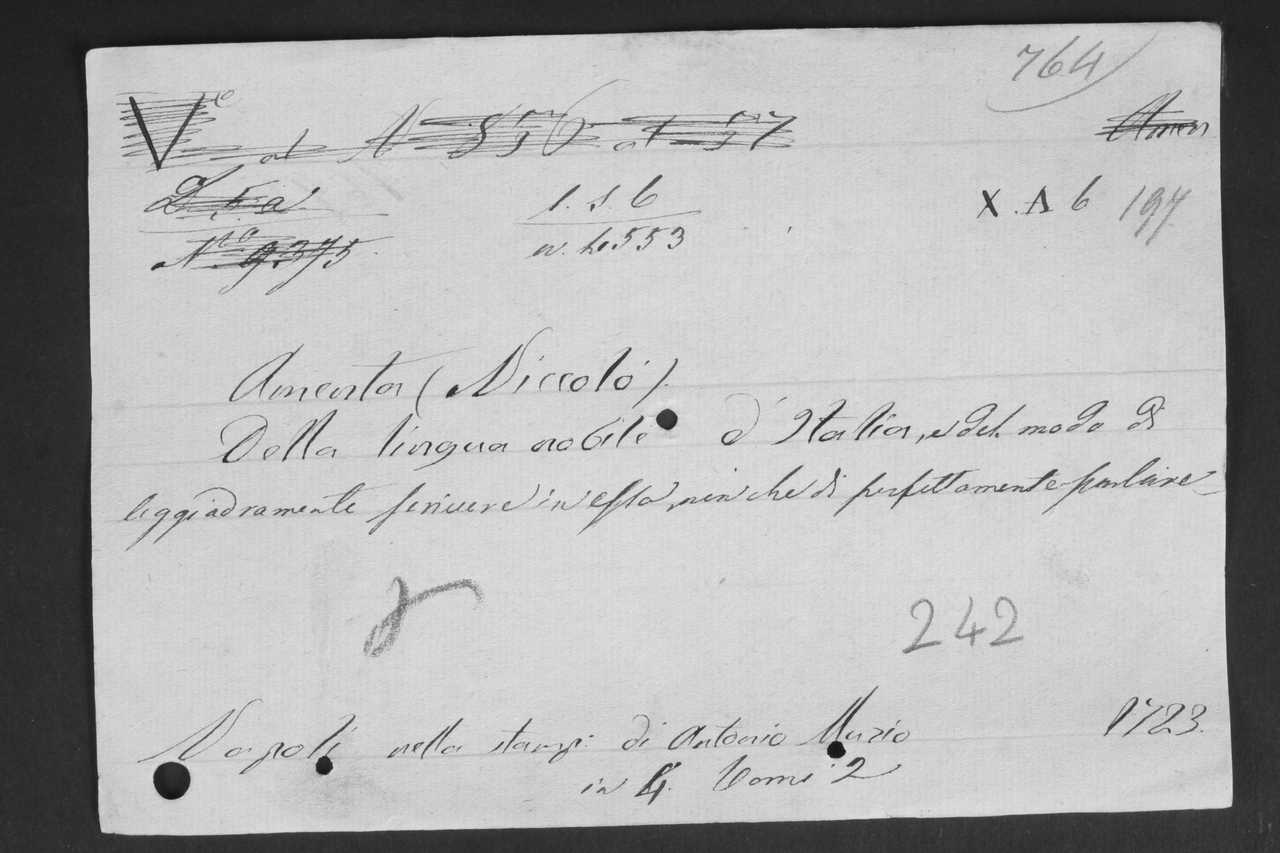 764
V
N 556 at 57
Amen
D. 5. a
1. s. 6
X. A 6 197
N.ro 9.375
Amenta (Niccolò)
Della lingua nobile d'Italia, e del modo di
leggiadramente scrivere in essa, non che di perfettamente parlare
242
Napoli nella stamp: di Antonio Muzio 1723.
in 4. Tomi 2